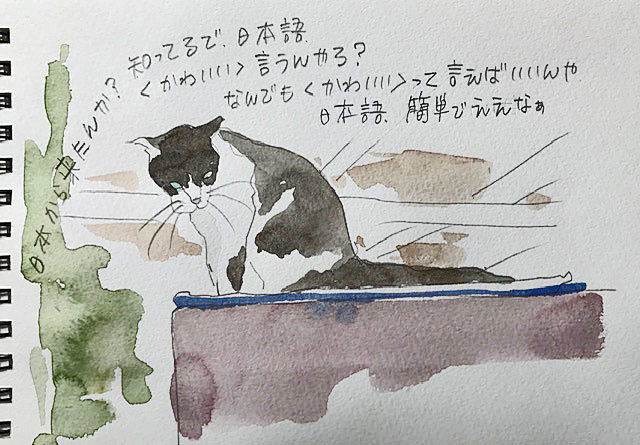 日本から来たんか?
知ってるで、日本語
<かわいい>言うんやろ?
なんでも<かわいい>って言えばいいんや
日本語、簡単でええなぁ